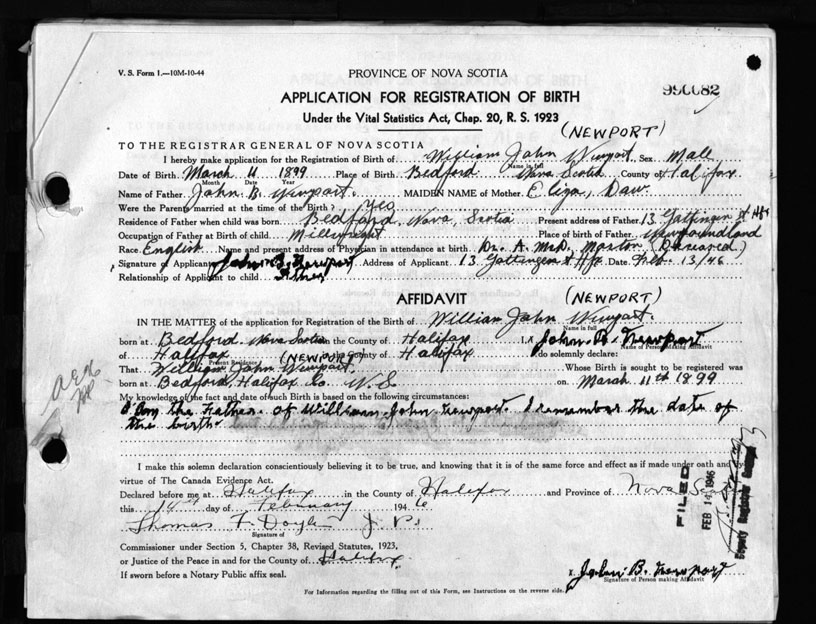 V. S. Form 1.—10M-10-44
PROVINCE OF NOVA SCOTIA
990082
APPLICATION FOR REGISTRATION OF BIRTH
Under the Vital Statistics Act, Chap. 20, R. S. 1923
(NEWPORT)
TO THE REGISTRAR GENERAL OF NOVA SCOTIA
I hereby make application for the Registration of Birth of William John Newport Sex Male
Name in full
Date of Birth March 11 1899 Place of Birth Bedford Nova Scotia County of Halifax
Month Date Year
Name of Father John B. Newport MAIDEN NAME of Mother Eliza Daw
Were the Parents married at the time of the Birth? Yes
Residence of Father when child was born Bedford, Nova Scotia Present address of Father 13 Gottingen St Hfx
Occupation of Father at Birth of child Millwright Place of birth of Father Newfoundland
Race English Name and present address of Physician in attendance at birth Dr. A. McD. Morton (Deceased)
Signature of Applicant John B. Newport Address of Applicant 13 Gottingen St Hfx Date Feb. 13/46
Relationship of Applicant to child Father
AFFIDAVIT
(NEWPORT)
IN THE MATTER of the application for Registration of the Birth of William John Newport
Name in full
born at Bedford Nova Scotia in the County of Halifax I, x John B. Newport
Name of Person making Affidavit
of Halifax in the County of Halifax do solemnly declare:
Present Residence
(NEWPORT)
That William John Newport Whose Birth is sought to be registered was
born at Bedford, Halifax Co. N.S on March 11th 1899
My knowledge of the fact and date of such Birth is based on the following circumstances:
I Am the Father of William John Newport. I remember the date of
the birth.
I make this solemn declaration conscientiously believing it to be true, and knowing that it is of the same force and effect as if made under oath and by
virtue of The Canada Evidence Act.
Declared before me at Halifax in the County of Halifax and Province of Nova Scotia
this 14th day of February 1946
Thomas F. Doyle J. P.
Signature of
Commissioner under Section 5, Chapter 38, Revised Statutes, 1923,
or Justice of the Peace in and for the County of Halifax
If sworn before a Notary Public affix seal.
x John B. Newport
Signature of Person making Affidavit
For Information regarding the filling out of this Form, see Instructions on the reverse side.
FILED
FEB 14 1946
Deputy Registrar General